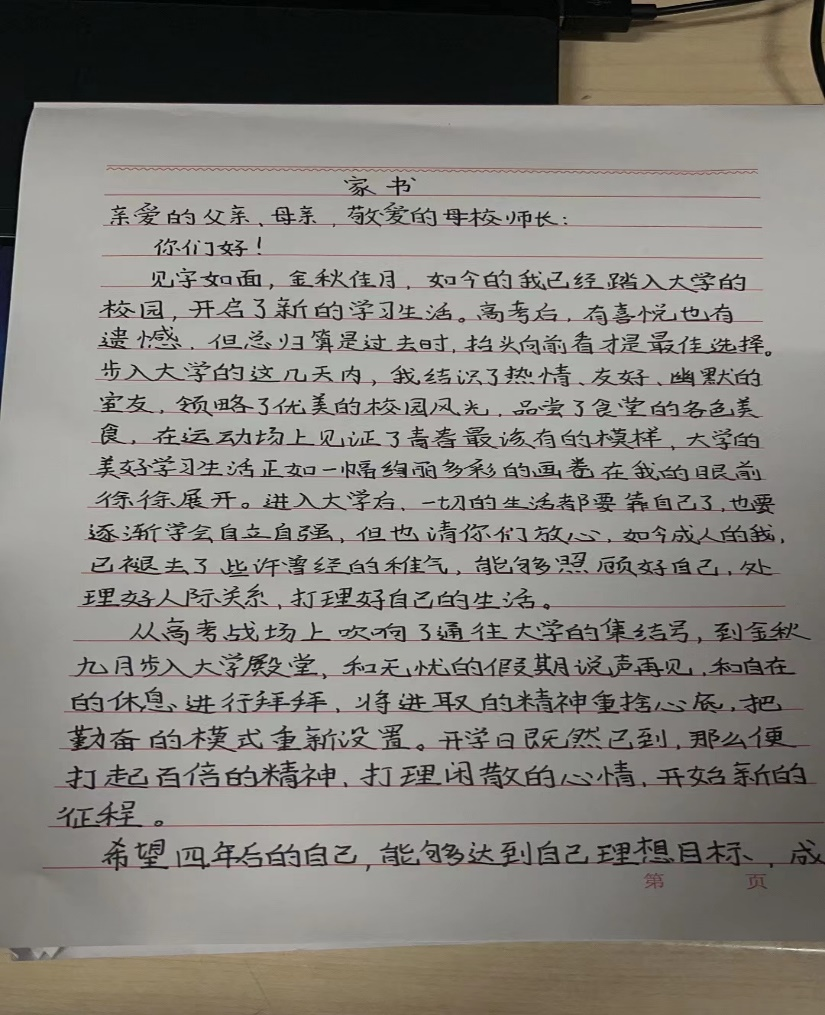 家书
亲爱的父亲、母亲，敬爱的母校师长：
你们好！
见字如面，金秋佳月，如今的我已经踏入大学的
校园，开启了新的学习生活。高考后，有喜悦也有
遗憾，但总归算是过去时，抬头向前看才是最佳选择。
步入大学的这几天内，我结识了热情、友好、幽默的
室友，领略了优美的校园风光，品尝了食堂的各色美
食，在运动场上见证了青春最该有的模样，大学的
美好学习生活正如一幅绚丽多彩的画卷在我的眼前
徐徐展开。进入大学后，一切的生活都要靠自己了，也要
逐渐学会自立自强，但也请你们放心，如今成人的我，
已褪去了些许曾经的稚气，能够照顾好自己，处
理好人际关系，打理好自己的生活。
从高考战场上吹响了通往大学的集结号，到金秋
九月步入大学殿堂，和无忧的假期说声再见，和自在
的休息进行拜拜，将进取的精神重拾心底，把
勤奋的模式重新设置。开学日既然已到，那么便
打起百倍的精神，打理闲散的心情，开始新的
征程。
希望四年后的自己，能够达到自己理想目标、成
第 页